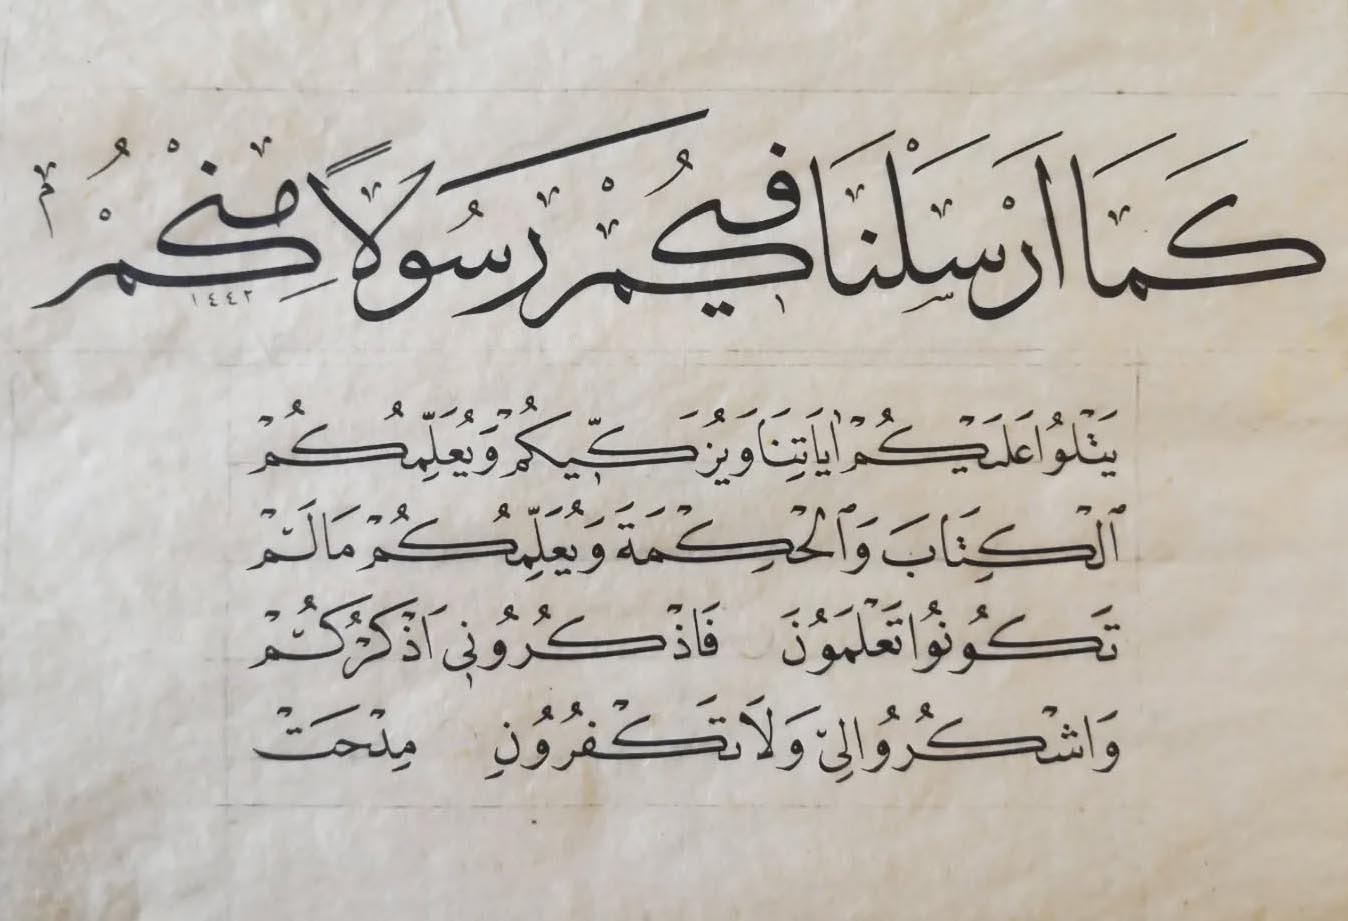 كَمَا اَرْسَلْنَا فِيكُمْ رَسُولًا مِنْكُمْ
١٤٤٢
يَتْلُوا عَلَيْكُمْ اٰيَاتِنَا وَيُزَكِّيكُمْ وَيُعَلِّمُكُمْ
ٱلْكِتَابَ وَٱلْحِكْمَةَ وَيُعَلِّمُكُمْ مَا لَمْ
تَكُونُوا تَعْلَمُونَ فَاذْكُرُونِي اَذْكُرْكُمْ
وَاشْكُرُوا لِي وَلَا تَكْفُرُونِ مِدْحَتْ